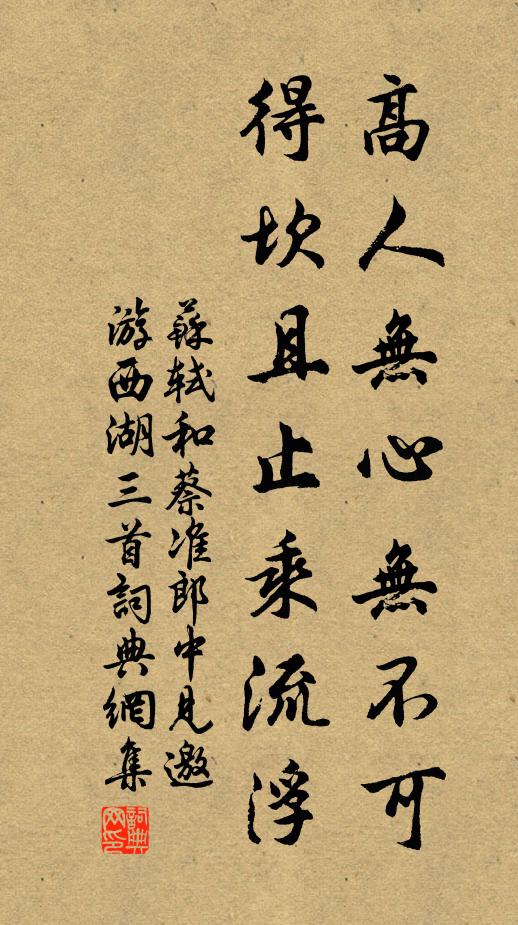 高人無心無不可
得坎且止乘流浮
蘇軾和蔡准郎中見邀
游西湖三首詞典網集
詞典
网印